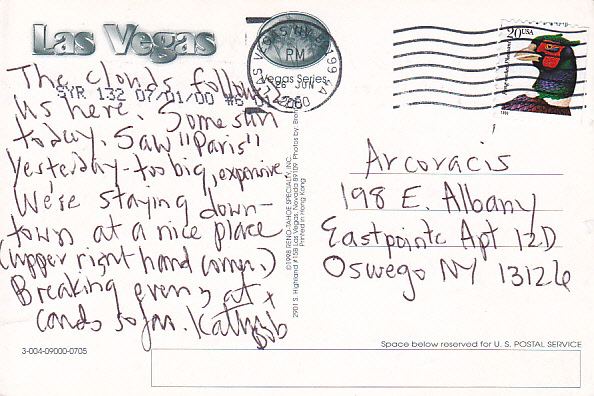 Las Vegas
Vegas Series
LAS VEGAS NV 891 99
PM
26 JUN
2000
20 USA
The clouds followed
SYR 132 07/01/00 #5
us here. Some sun
today. Saw "Paris"
yesterday - too big, expensive
We're staying down-
town at a nice place
(upper right hand corner.)
Breaking even at
cards so far. Kathy +
Bob
Arcoracis
198 E. Albany
Eastpointe Apt 12D
Oswego NY 13126
©1998 RENO-TAHOE SPECIALTY, INC.
2901 S. Highland #15B Las Vegas, Nevada 89109 Photos by:
Printed in Hong Kong
3-004-09000-0705
Space below reserved for U. S. POSTAL SERVICE